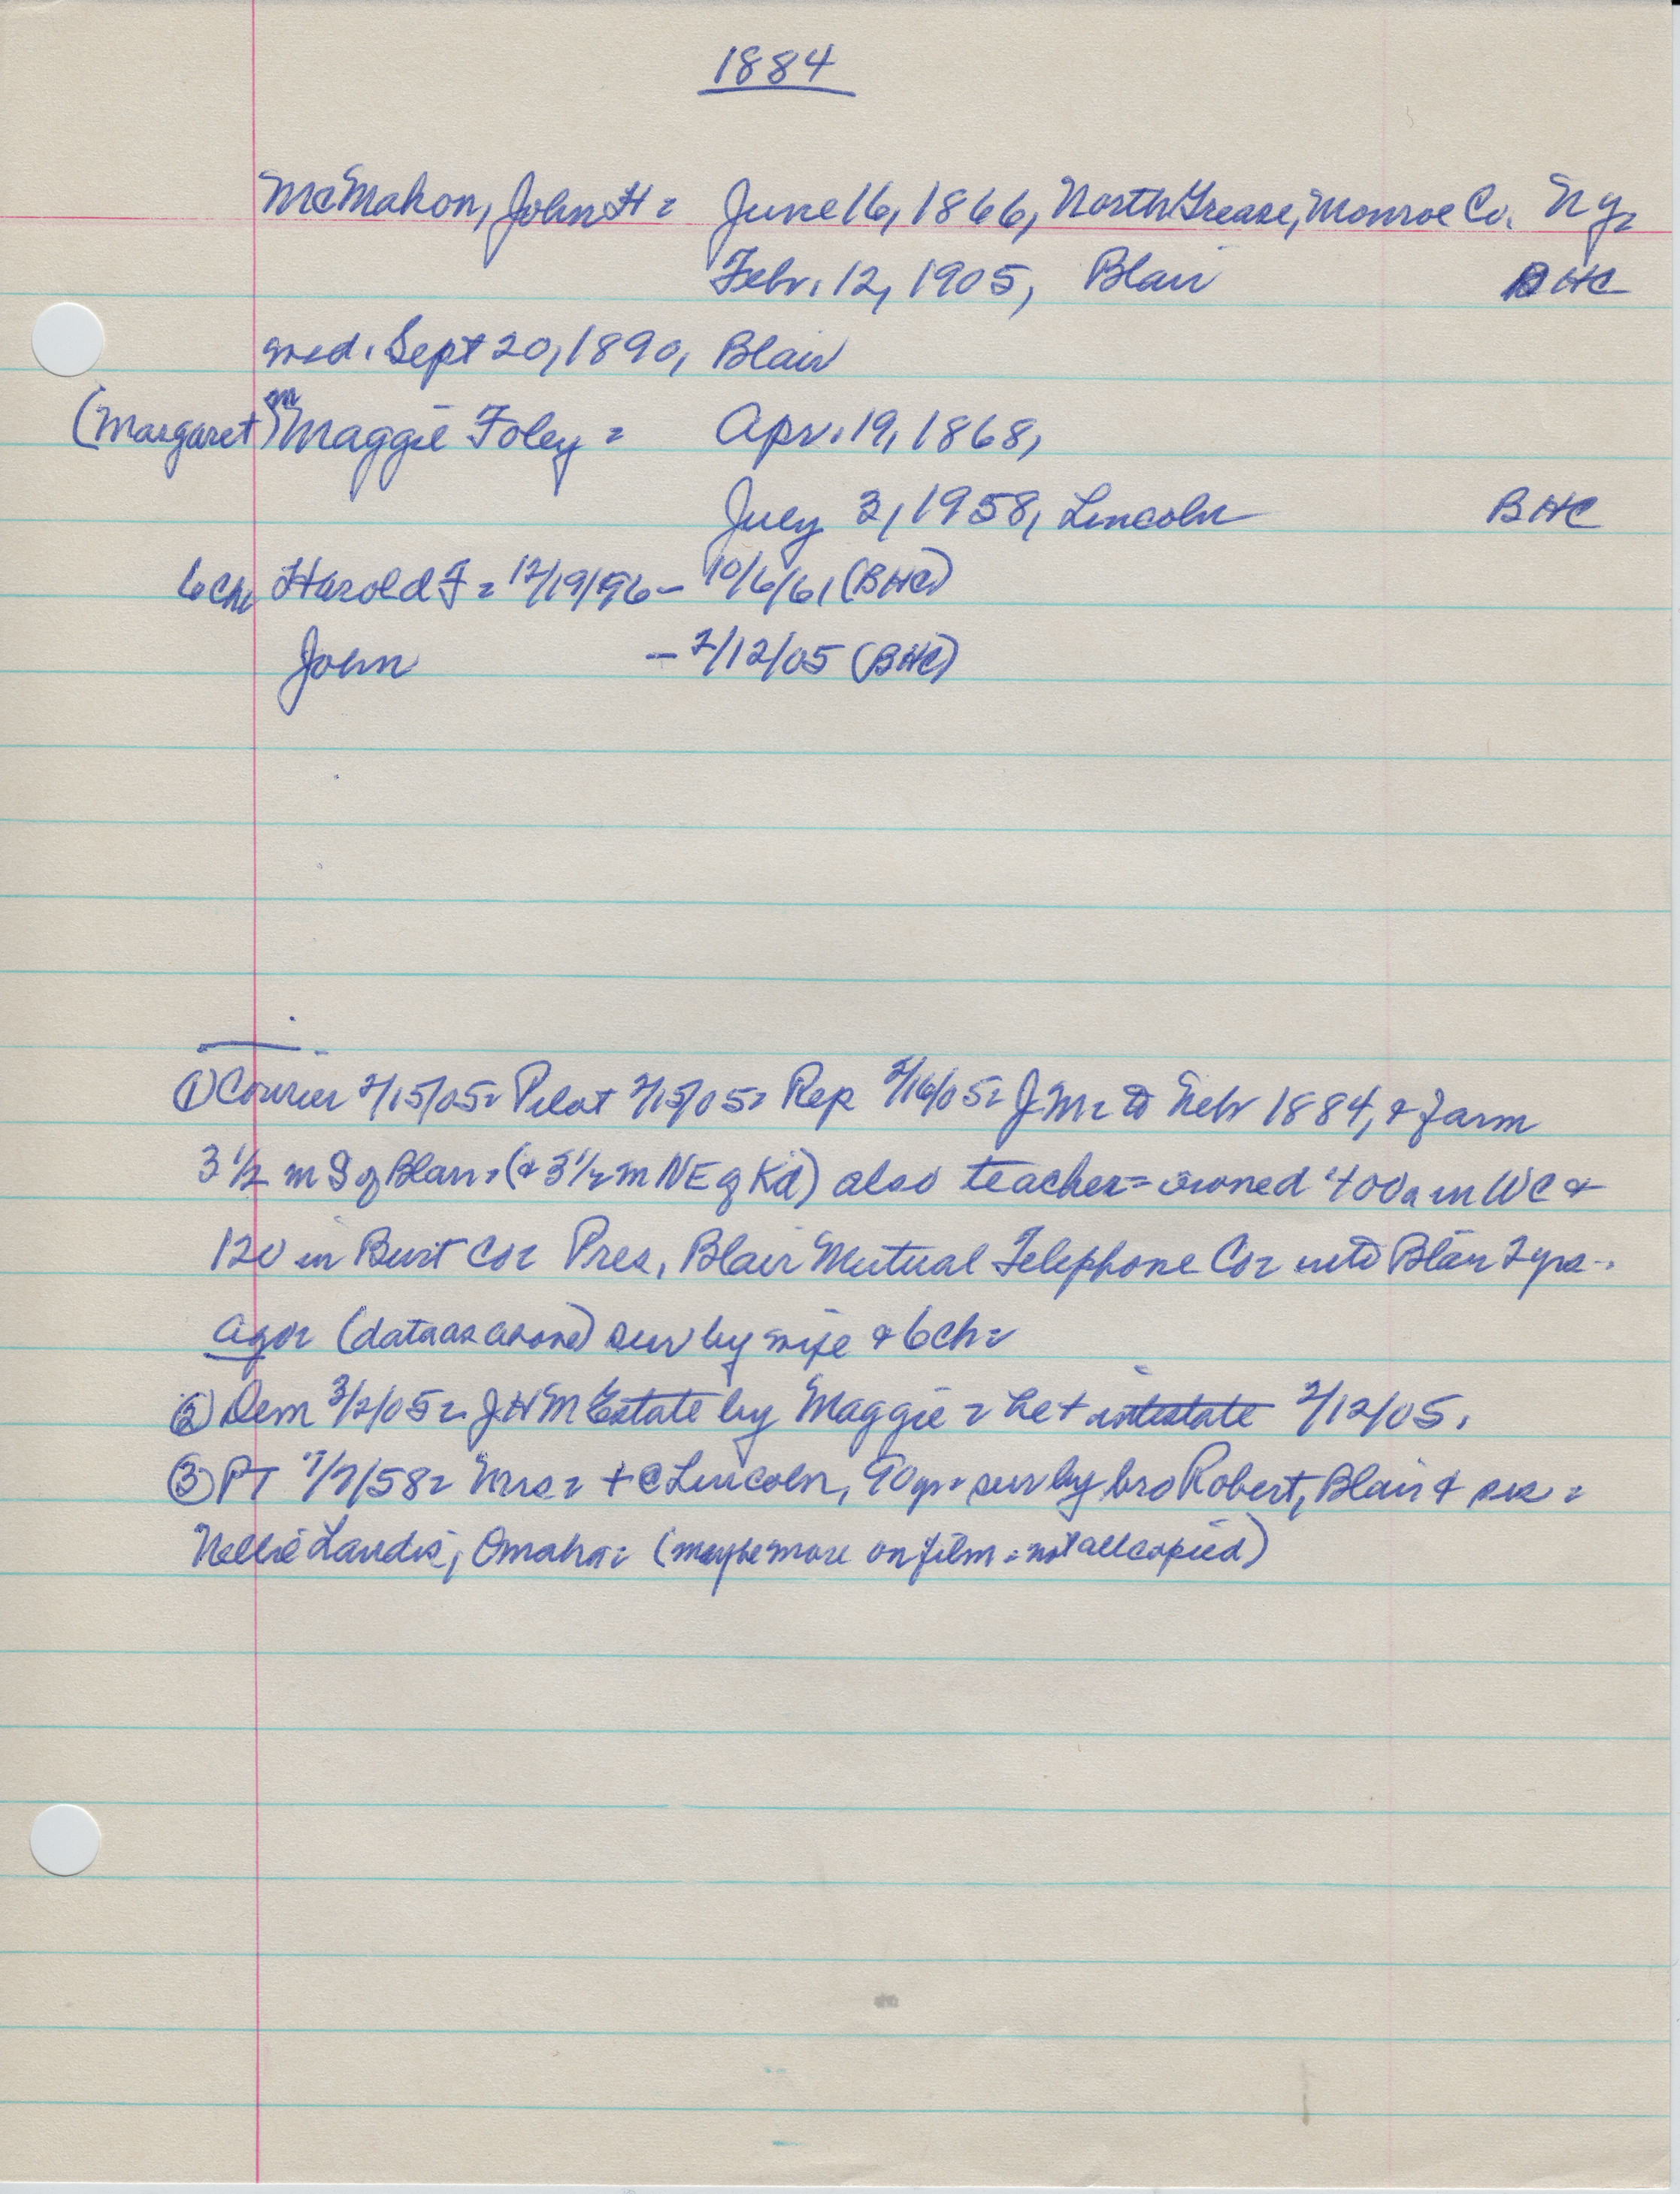 1884
McMahon, John H = June 16, 1866, North Grease, Monroe Co. Ny=
Febr. 12, 1905, Blair BHC
md. Sept 20, 1890, Blair
(Margaret) M Maggie Foley = Apr. 19, 1868,
July 3, 1958, Lincoln BHC
6 ch Harold F = 12/19/96 - 10/6/61 (BHC)
John - 2/12/05 (BHC)
① Courier 2/15/05= Pilot 2/15/05= Rep 2/16/05= JM= to Nebr 1884, & farm
3 1/2 m S of Blair= (& 3 1/2 m NE of Kd) also teacher= owned 400a in WC &
120 in Burt Co= Pres, Blair Mutual Telephone Co= into Blair 2 yrs
ago= (data as above) sur by wife & 6 ch=
② Dem 3/2/05= JHM Estate by Maggie = he + intestate 2/12/05.
③ PT 7/7/58= Mrs= + @ Lincoln, 90 yr= sur by bro Robert, Blair & sis =
Nellie Landis, Omaha= (maybe more on film = not all copied)